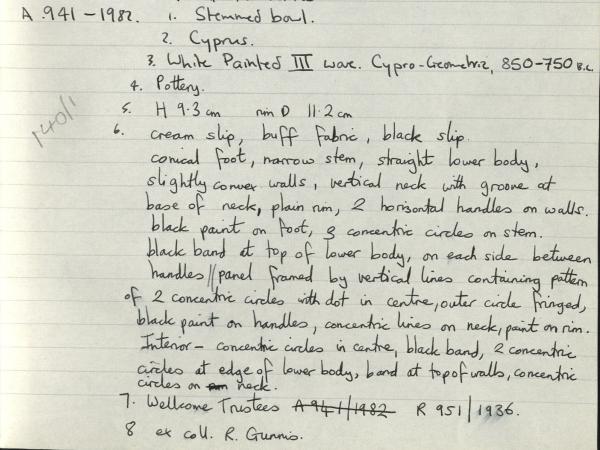 A.941-1982. 1. Stemmed bowl.
2. Cyprus.
3. White Painted III ware. Cypro-Geometric, 850-750 B.C.
4. Pottery.
5. H 9.3 cm rim D 11.2 cm
140/1
6. cream slip, buff fabric, black slip.
conical foot, narrow stem, straight lower body,
slightly convex walls, vertical neck with groove at
base of neck, plain rim, 2 horisontal handles on walls.
black paint on foot, 3 concentric circles on stem.
black band at top of lower body, on each side between
handles // panel framed by vertical lines containing pattern
of 2 concentric circles with dot in centre, outer circle fringed,
black paint on handles, concentric lines on neck, paint on rim.
Interior - concentric circles in centre, black band, 2 concentric
circles at edge of lower body, band at top of walls, concentric
circles on neck.
7. Wellcome Trustees A941/1982 R 951/1936.
8 ex coll. R. Gunnis.